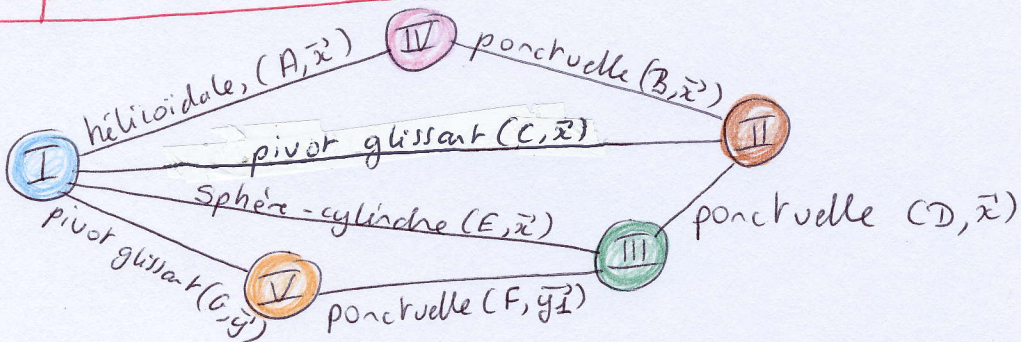 IV
hélicoïdale, (A, x⃗)
ponctuelle (B, x⃗)
II
pivot glissant (C, x⃗)
I
sphère-cylindre (E, x⃗)
ponctuelle (D, x⃗)
III
pivot glissant (G, y⃗)
V
ponctuelle (F, y⃗1)